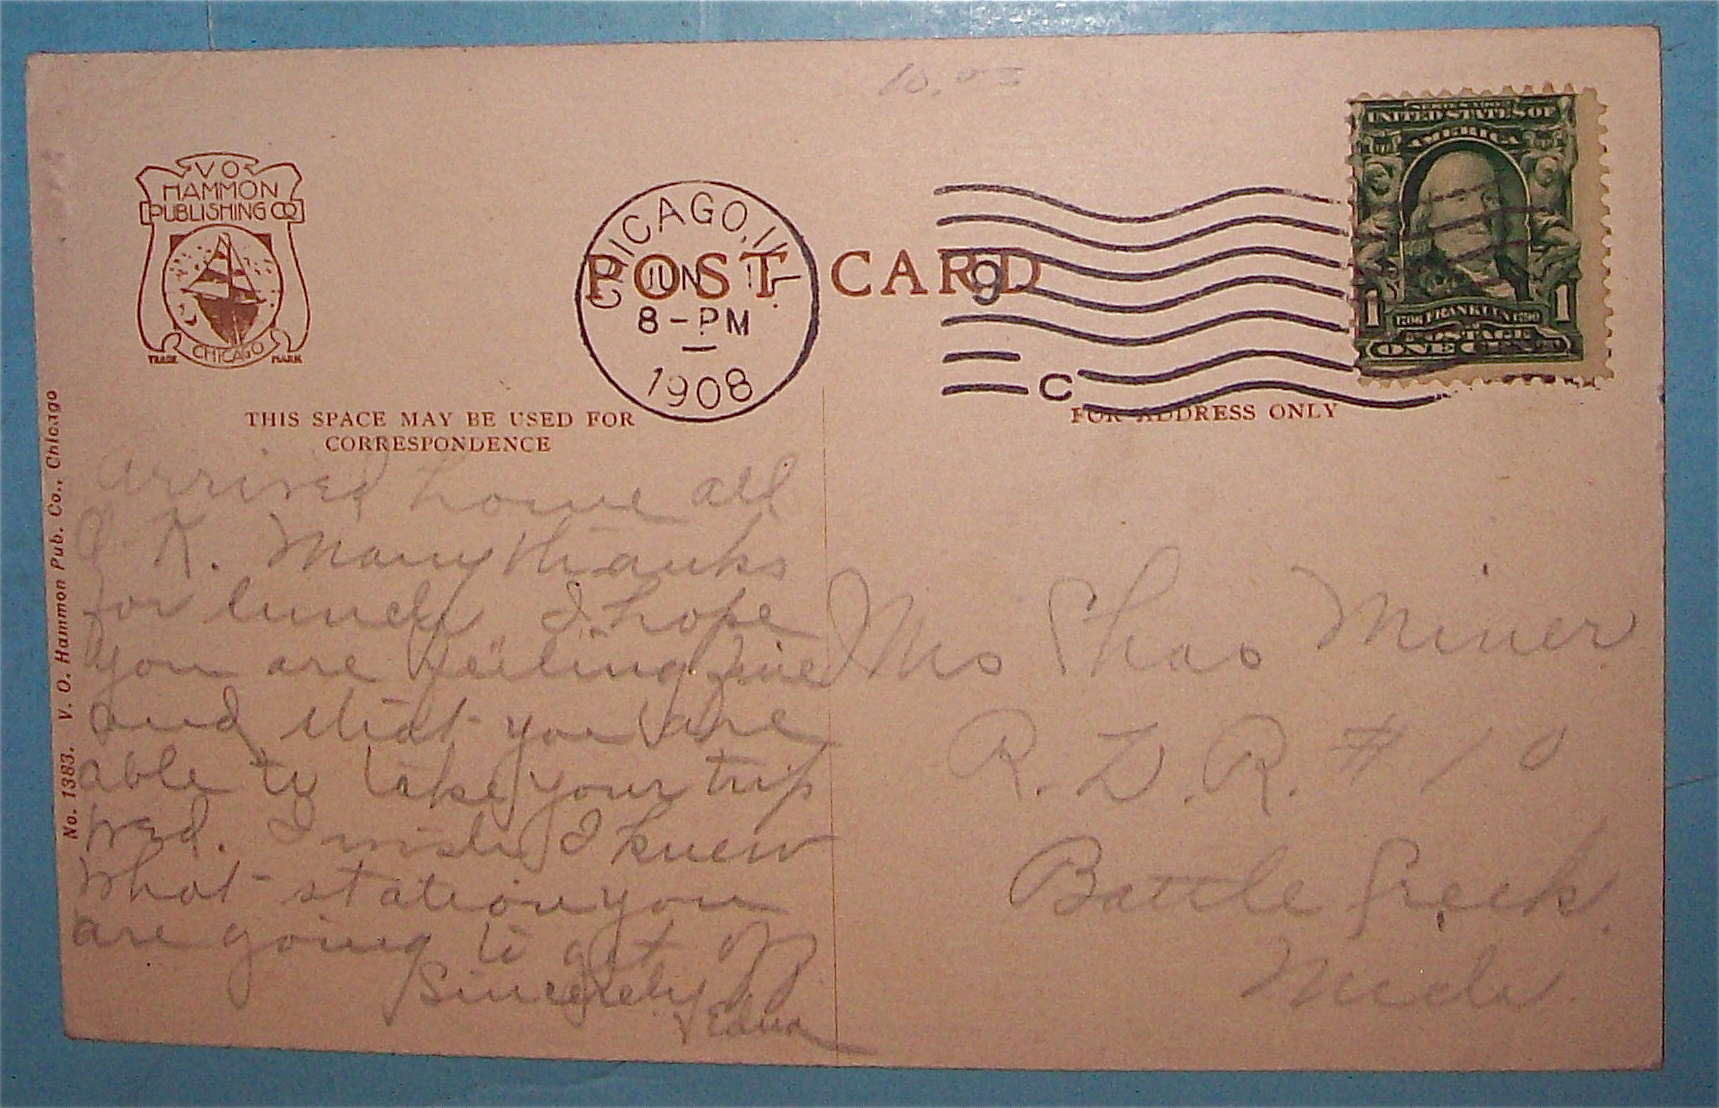 10.03
V O
HAMMON
PUBLISHING CO
CHICAGO
TRADE MARK
CHICAGO, ILL.
JUN 1
8-PM
1908
POST CARD
9
C
SERIES 1902
UNITED STATES OF
AMERICA
1 1706 FRANKLIN 1790 1
POSTAGE
ONE CENT
THIS SPACE MAY BE USED FOR
CORRESPONDENCE
FOR ADDRESS ONLY
No. 1383. V. O. Hammon Pub. Co., Chicago
arrived home all
O. K. Many thanks
for lunch, I hope
you are feeling fine
and that you are
able to take your trip
Wed. I wish I knew
what station you
are going to get
Sincerely
Edna
Mrs Chas Miner
R. D. R. # 10
Battle Creek
Mich.